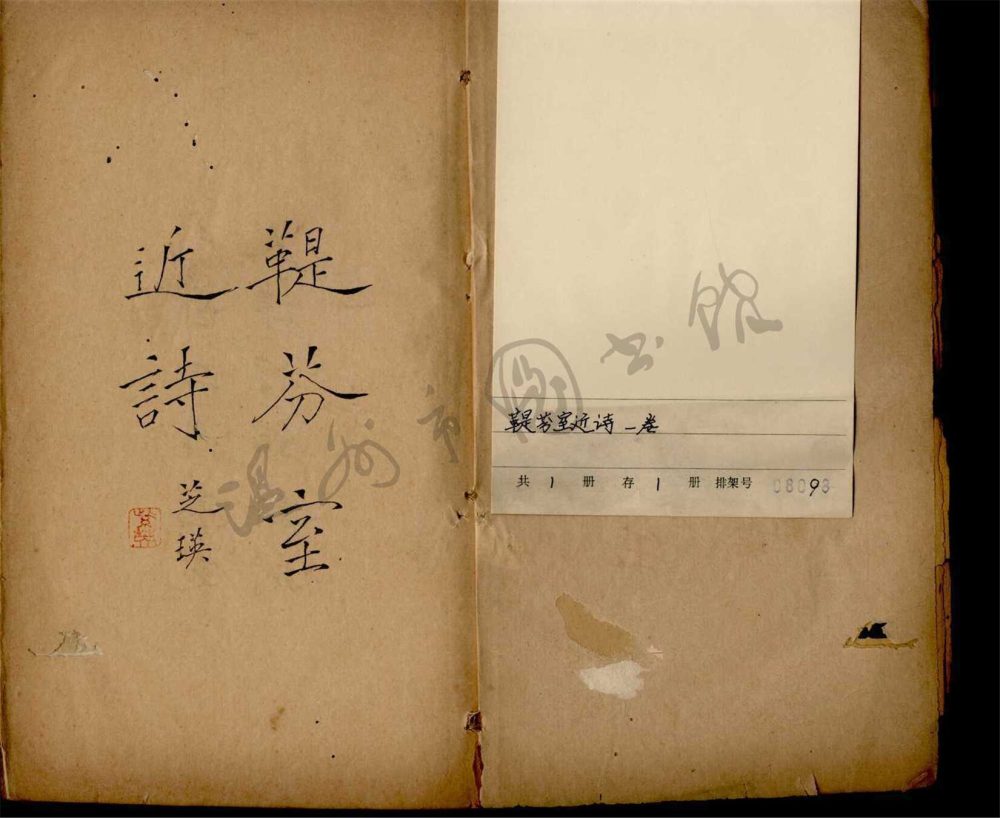 鞮芬室
近詩
芝瑛
鞮芬室近诗一卷
共 1 册 存 1 册 排架号 08093
温州市圖书馆